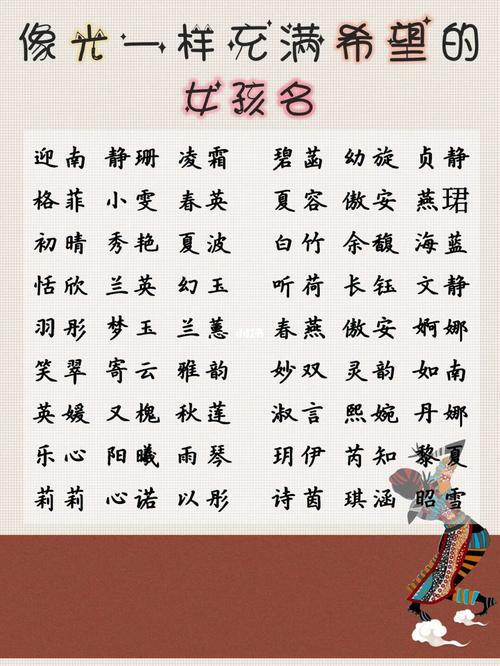 像光一样充满希望的
女孩名
迎南 静珊 凌霜 碧菡 幼旋 贞静
格菲 小雯 春英 夏容 傲安 燕珺
初晴 秀艳 夏波 白竹 余馥 海蓝
恬欣 兰英 幻玉 听荷 长钰 文静
羽彤 梦玉 兰蕙 春燕 傲安 婀娜
笑翠 寄云 雅韵 妙双 灵韵 如南
英媛 又槐 秋莲 淑言 熙婉 丹娜
乐心 阳曦 雨琴 玥伊 芮知 黎夏
莉莉 心诺 以彤 诗茵 琪涵 昭雪
小红书